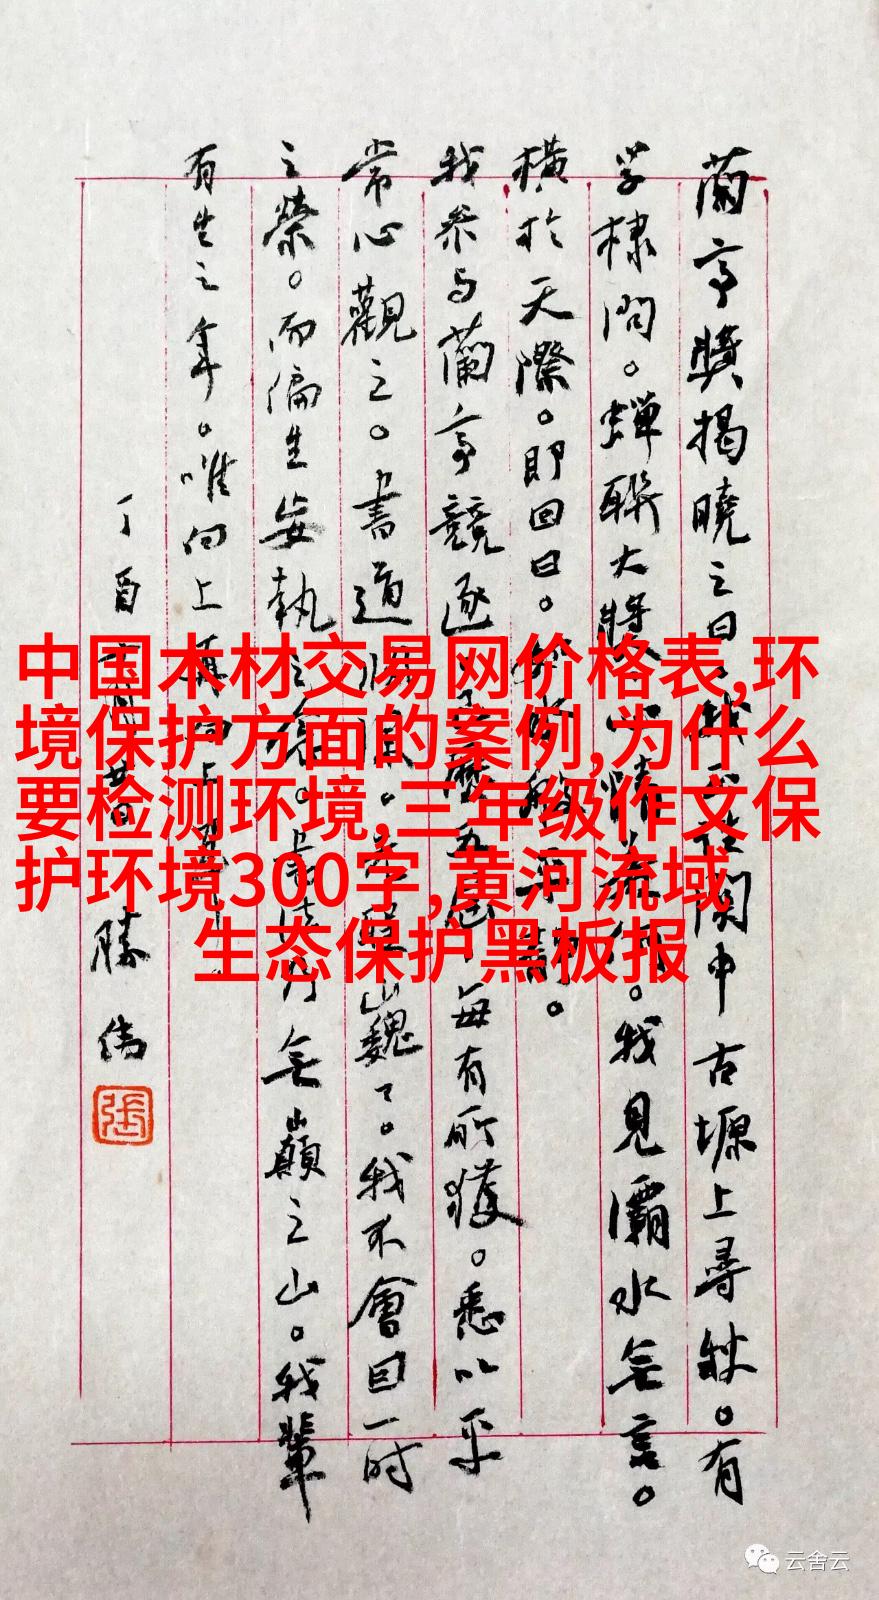 蘭亭獎揭曉之日。我在關中古塬上尋秋。有
学棣問。蟬聯大獎心情若何。我見灞水無言。
橫於天際。即回曰。平静。
我參与蘭亭競逐歷五屆。每有所獲。悉以平
常心觀之。書道山巍了。我不會因一时
之榮。而偏生妄執之念。無巔之山。我輩
有生之年。唯向上再向上
丁酉勝偉
張
中国木材交易网价格表,环
境保护方面的案例,为什么
要检测环境,三年级作文保
护环境300字,黄河流域
生态保护黑板报
云舍云